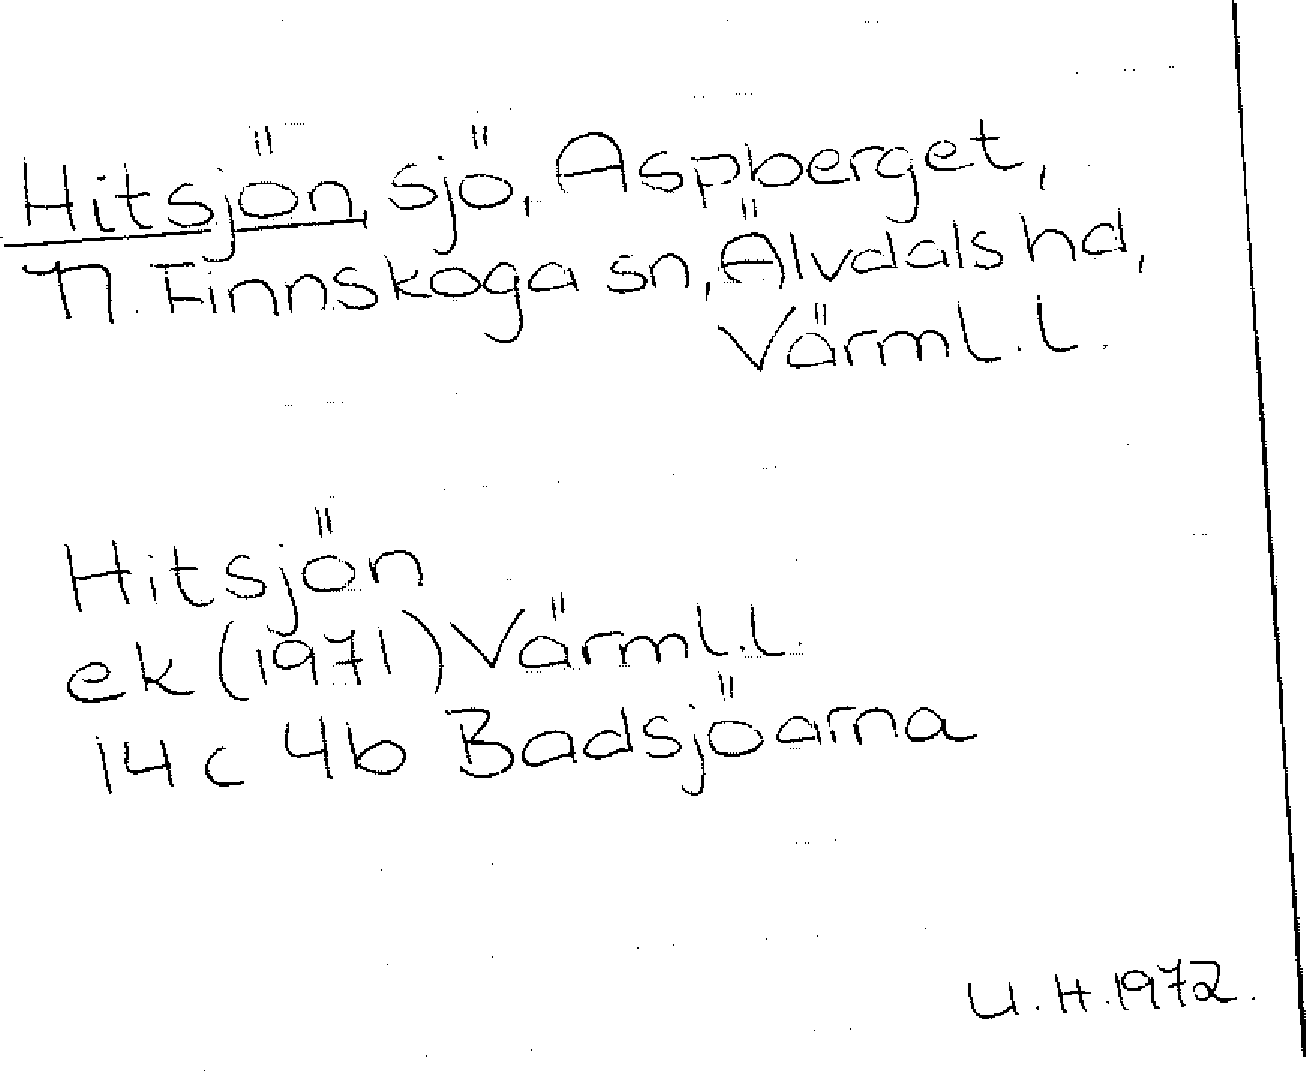 Hitsjön sjö, Aspberget,
N. Finnskoga sn, Älvdals hd,
Värml. l.
Hitsjön
ek (1971) Värml. l.
14 c 4b Badsjöarna
U. H. 1972.